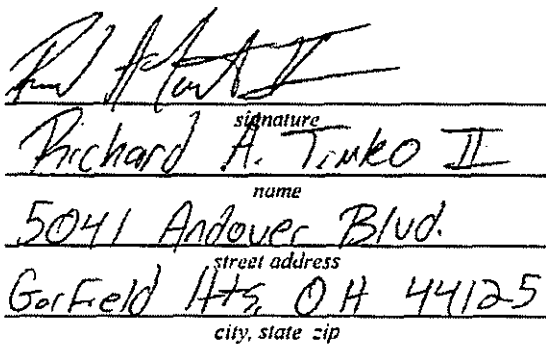 signature
Richard A. Timko II
name
5041 Andover Blvd.
street address
Garfield Hts, OH 44125
city, state zip